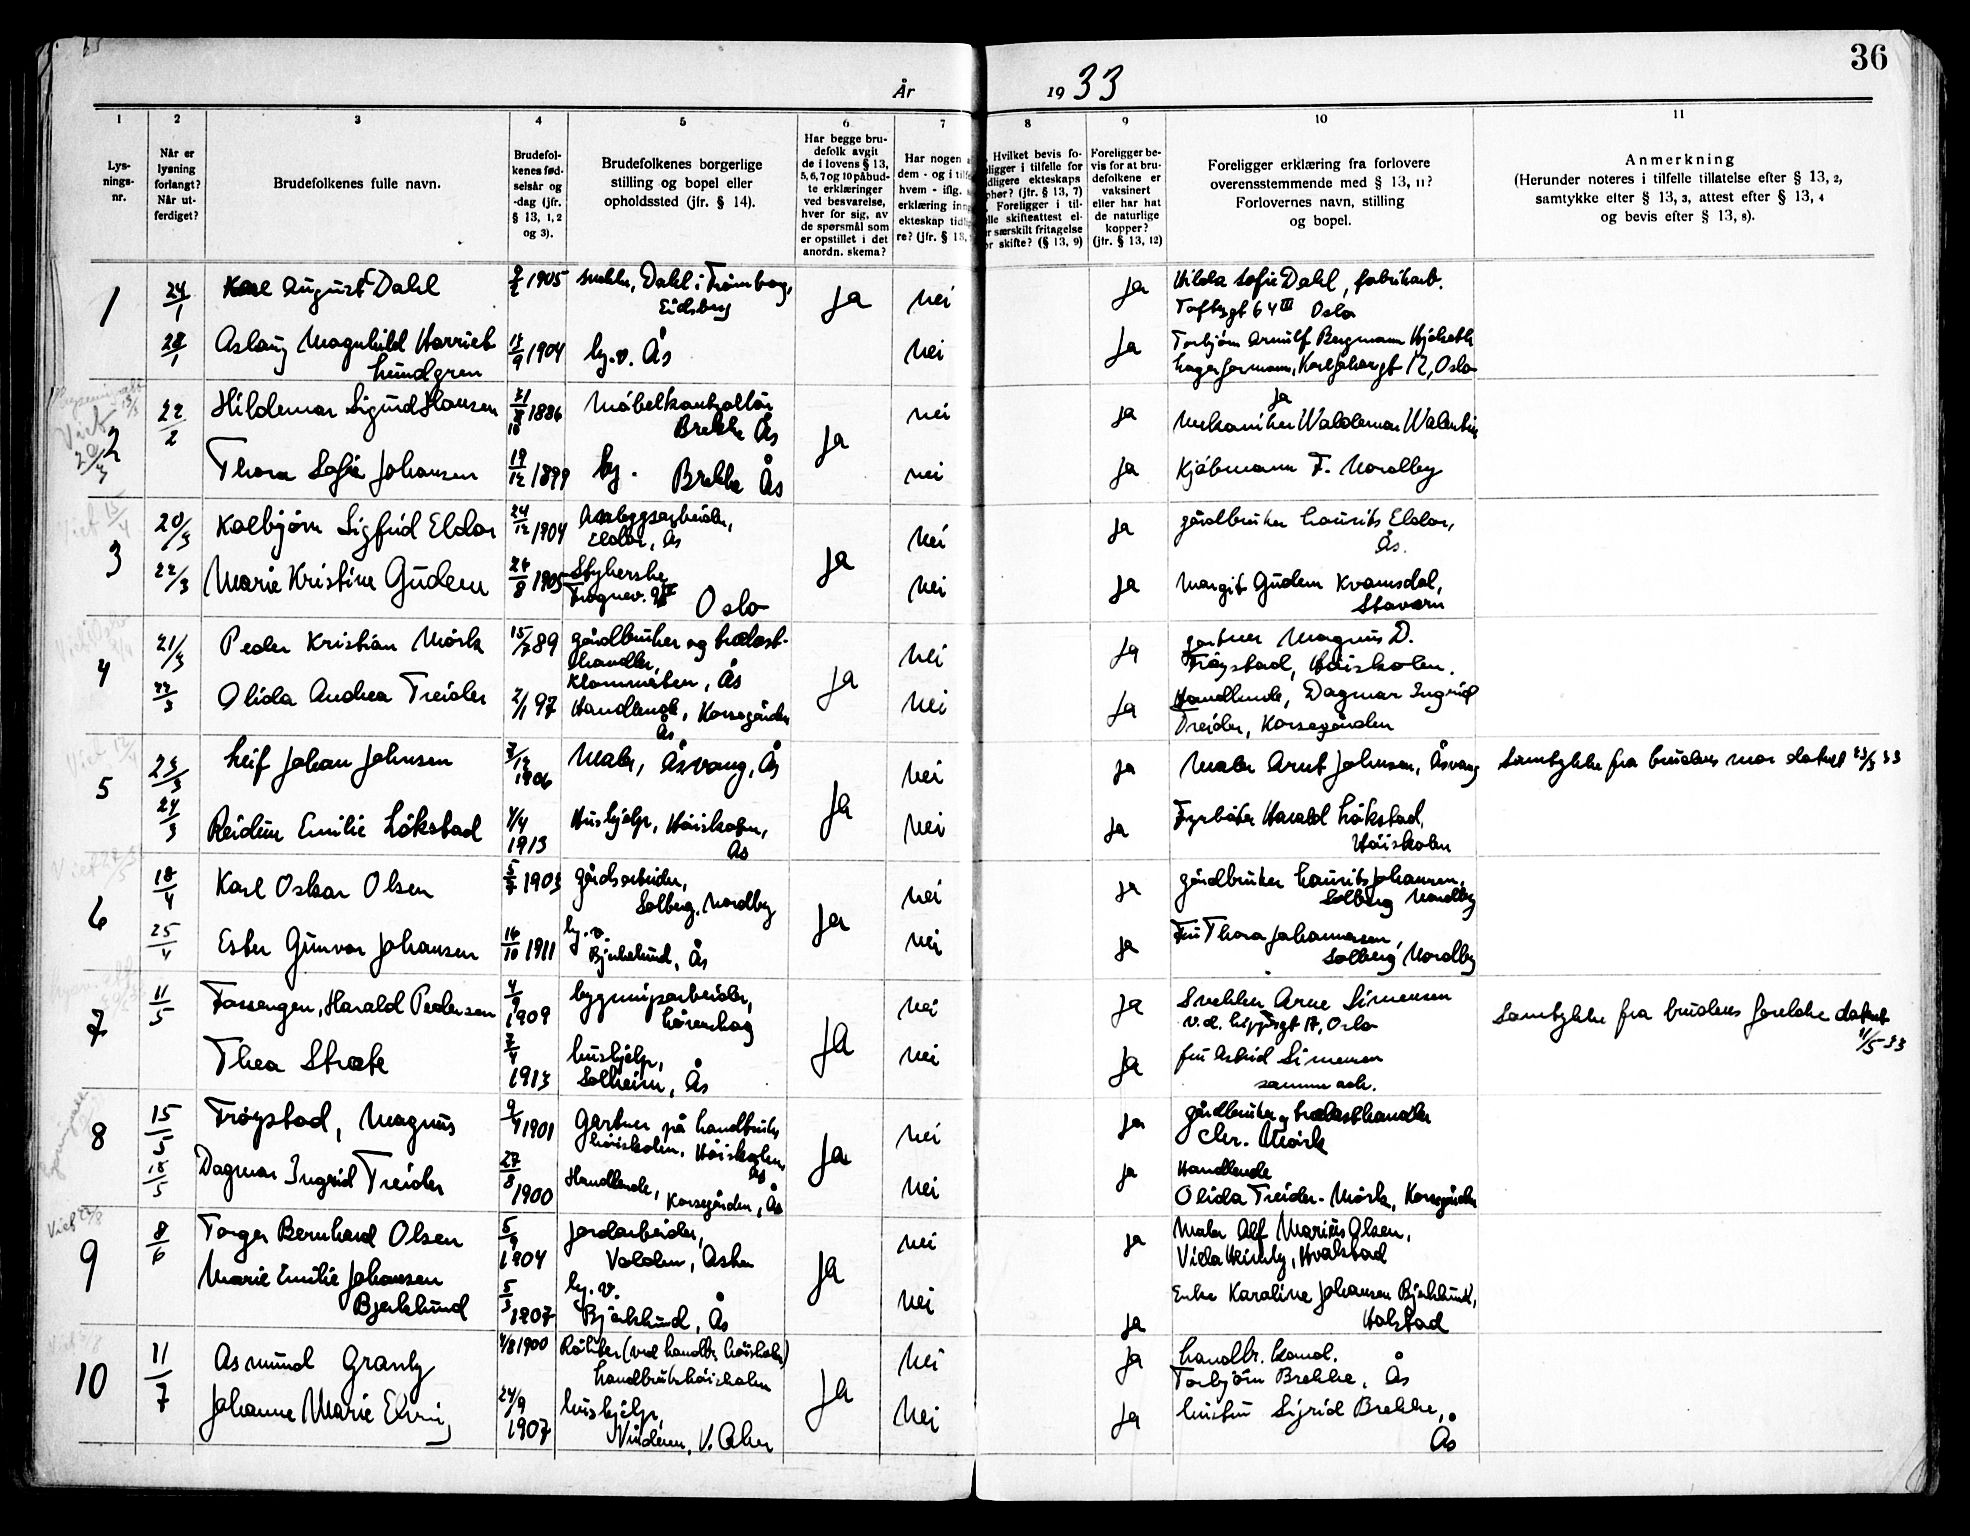 36
År 1933
1 2 3 4 5 6 7 8 9 10 11
Lys-
nings-
nr.
Når er
lysning
forlangt?
Når ut-
ferdiget?
Brudefolkenes fulle navn.
Brudefol-
kenes fød-
selsår og
-dag (jfr.
§ 13, 1, 2
og 3).
Brudefolkenes borgerlige
stilling og bopel eller
opholdssted (jfr. § 14).
Har begge bru-
defolk avgit
de i lovens § 13,
5, 6, 7 og 10 påbud-
te erklæringer
ved besvarelse,
hver for sig, av
de spørsmål som
er opstillet i det
anordn. skema?
Har nogen
dem - og i
hvem - iflg.
erklæring
ekteskap
re? (jfr. § 13,
Hvilket bevis fo-
ligger i tilfelle for
ekteskaps
(jfr. § 13, 7)
Foreligger i til-
skifteattest el-
særskilt fritagelse
skifte? (§ 13, 9)
Foreligger be-
vis for at bru-
defolkene er
vaksinert
eller har hat
de naturlige
kopper?
(jfr. § 13, 12)
Foreligger erklæring fra forlovere
overensstemmende med § 13, 11?
Forlovernes navn, stilling
og bopel.
Anmerkning
(Herunder noteres i tilfelle tillatelse efter § 13, 2,
samtykke efter § 13, 3, attest efter § 13, 4
og bevis efter § 13, 8).
1 24/1 Karl August Dahl 1905 Dahl i Trømborg, Ja nei Ja Hilda Sofie Dahl, fabrikarb.
Eidsberg Toftesgt 64 III Oslo
28/1 Aslaug Magnhild Harriet 1904 hj.v. Ås nei Ja Torbjørn Arnulf Bergmann
Lundgren Lagerformann, Karl Johansgt 12, Oslo
Ja
2 22/2 Hildemar Sigurd Hansen 1886 Møbelkontrollør nei Ja Mekaniker Waldemar
Brekke Ås Ja
Thora Sofie Johansen 19/12 1899 hj. Brekke Ås nei Ja Kjøbmann F. Nordby
3 20/3 Kolbjørn Sigfrid Eldor 24/12 1904 nei Ja gårdbruker Laurits Eldor,
Eldor, Ås Ja Ås.
22/3 Marie Kristine Gudem 1905 nei Ja Margit Gudem Kvamsdal,
Oslo Stavern
4 21/3 Peder Kristian Mørk 89 gårdbruker og trelast- nei Ja gartner Magnus D.
handler, Frøystad, Høiskolen.
Ås Ja
Olida Andrea Treider 2/1 97 Handlende, Korsegården nei Ja Handlende, Dagmar Ingrid
Ås Treider, Korsegården
5 23/3 Leif Johan Johnsen 1906 Maler, Åsvang, Ås nei Ja Maler Arnt Johnsen, Åsvang Samtykke fra brudens mor datert 23/3 33
24/3 Reidun Emilie Løkstad 4/4 1913 Hushjelp, Høiskolen, Ja nei Ja Fyrbøter Harald Løkstad,
Ås Høiskolen
6 18/4 Karl Oskar Olsen 1903 gårdsarbeider, nei Ja gårdbruker Laurits Johansen,
Solberg, Nordby Ja Solberg Nordby
25/4 Ester Gunvor Johansen 16/10 1911 hj.v. nei Ja Fru Thora Johannesen,
Bjerkelund, Ås Solberg Nordby
7 11/5 Fossengen, Harald Pedersen 4/9 1909 bygningsarbeider, nei Ja Snekker Arne Simensen Samtykke fra brudens foreldre datert
11/5 33
Thea 1913 hushjelp, Ja nei Ja fru Astrid Simensen
Solheim, Ås samme adr.
8 15/5 Frøystad, Magnus 1901 Gartner på landbruks nei Ja gårdbruker og trelasthandler
høiskolen, Høiskolen, Ås Ja Chr. Mørk
18/5 Dagmar Ingrid Treider 27/8 1900 Handlende, nei Ja Handlende
Korsegården, Ås Olida Treider-Mørk, Korsegården
9 8/6 Torger Bernhard Olsen 5/9 1904 Jordarbeider, nei Ja Maler Alf Marius Olsen,
Asker Ja Villa Heimly, Hvalstad
Marie Emilie Johansen 5/3 1907 hj.v. nei Ja Enke Karoline Johansen Bjerkelund,
Bjerkelund Bjerkelund, Ås
10 11/7 Asmund Granly 1900 Røkter (ved landbr. høiskolen) nei Ja landbr. kand.
Landbrukshøiskolen Ja Torbjørn Brekke, Ås
Johanne Marie 24/9 1907 hushjelp, nei Ja hustru Sigrid Brekke,
Vinderen, V. Aker Ås